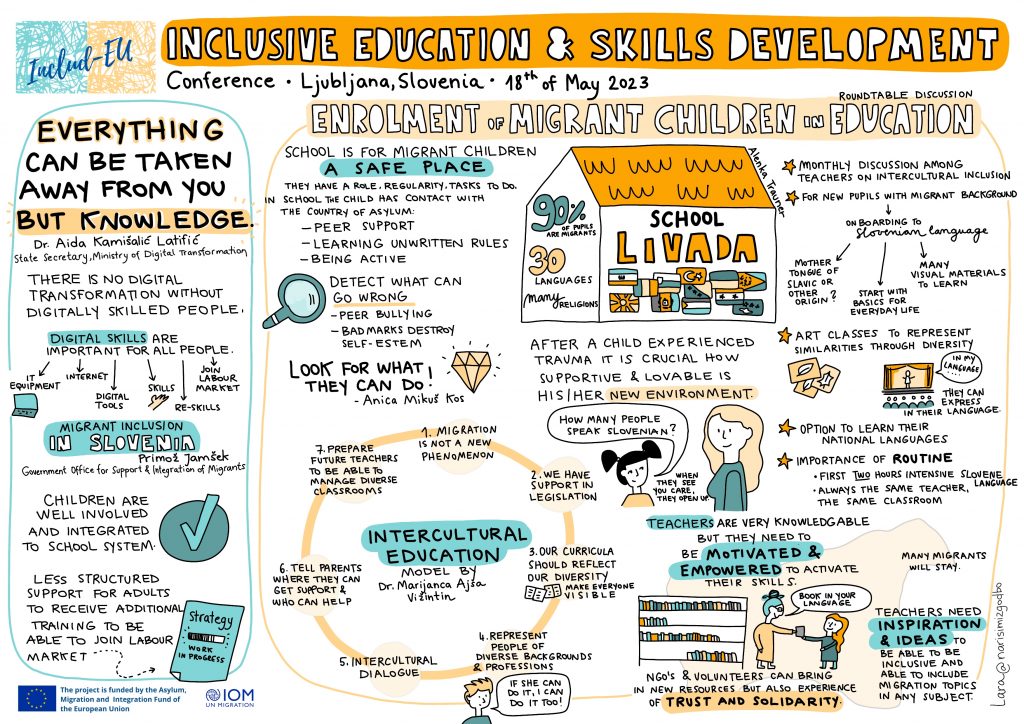 Includ-EU
INCLUSIVE EDUCATION & SKILLS DEVELOPMENT
Conference · Ljubljana, Slovenia · 18th of May 2023
EVERYTHING
CAN BE TAKEN
AWAY FROM YOU
BUT KNOWLEDGE.
Dr. Aida Kamišalić Latifić
State Secretary, Ministry of Digital Transformation
THERE IS NO DIGITAL
TRANSFORMATION WITHOUT
DIGITALLY SKILLED PEOPLE.
DIGITAL SKILLS ARE
IMPORTANT FOR ALL PEOPLE.
IT
EQUIPMENT
INTERNET
DIGITAL
TOOLS
SKILLS
RE-SKILLS
JOIN
LABOUR
MARKET
MIGRANT INCLUSION
IN SLOVENIA
Primož Jamšek
Government Office for Support & Integration of Migrants
CHILDREN ARE
WELL INVOLVED
AND INTEGRATED
TO SCHOOL SYSTEM.
LESS STRUCTURED
SUPPORT FOR ADULTS
TO RECEIVE ADDITIONAL
TRAINING TO BE
ABLE TO JOIN LABOUR
MARKET
Strategy
WORK
IN PROGRESS
ROUNDTABLE DISCUSSION
ENROLMENT OF MIGRANT CHILDREN IN EDUCATION
SCHOOL IS FOR MIGRANT CHILDREN
A SAFE PLACE
THEY HAVE A ROLE, REGULARITY, TASKS TO DO.
IN SCHOOL THE CHILD HAS CONTACT WITH
THE COUNTRY OF ASYLUM:
- PEER SUPPORT
- LEARNING UNWRITTEN RULES
- BEING ACTIVE
DETECT WHAT CAN
GO WRONG
- PEER BULLYING
- BAD MARKS DESTROY
SELF-ESTEM
LOOK FOR WHAT
THEY CAN DO!
- Anica Mikuš Kos
Alenka Trauner
90%
OF PUPILS
ARE MIGRANTS
30
LANGUAGES
many
RELIGIONS
SCHOOL
LIVADA
AFTER A CHILD EXPERIENCED
TRAUMA IT IS CRUCIAL HOW
SUPPORTIVE & LOVABLE IS
HIS/HER NEW ENVIRONMENT.
HOW MANY PEOPLE
SPEAK SLOVENIAN?
WHEN
THEY SEE
YOU CARE,
THEY OPEN UP.
MONTHLY DISCUSSION AMONG
TEACHERS ON INTERCULTURAL INCLUSION
FOR NEW PUPILS WITH MIGRANT BACKGROUND
ONBOARDING TO
Slovenian language
MOTHER
TONGUE OF
SLAVIC OR
OTHER
ORIGIN?
START WITH
BASICS FOR
EVERYDAY LIFE
MANY
VISUAL MATERIALS
TO LEARN
ART CLASSES TO REPRESENT
SIMILARITIES THROUGH DIVERSITY
IN MY
LANGUAGE...
THEY CAN
EXPRESS
IN THEIR LANGUAGE
OPTION TO LEARN THEIR
NATIONAL LANGUAGES
IMPORTANCE OF ROUTINE
• FIRST TWO HOURS INTENSIVE SLOVENE
LANGUAGE
• ALWAYS THE SAME TEACHER,
THE SAME CLASSROOM
INTERCULTURAL
EDUCATION
MODEL BY
Dr. Marijanca Ajša
Vižintin
1. MIGRATION
IS NOT A NEW
PHENOMENON
2. WE HAVE
SUPPORT IN
LEGISLATION
3. OUR CURRICULA
SHOULD REFLECT
OUR DIVERSITY
MAKE EVERYONE
VISIBLE
4. REPRESENT
PEOPLE OF
DIVERSE BACKGROUNDS
& PROFESSIONS
IF SHE CAN
DO IT, I CAN
DO IT TOO!
5. INTERCULTURAL
DIALOGUE
6. TELL PARENTS
WHERE THEY CAN
GET SUPPORT &
WHO CAN HELP
7. PREPARE
FUTURE TEACHERS
TO BE ABLE TO
MANAGE DIVERSE
CLASSROOMS
TEACHERS ARE VERY KNOWLEDGABLE
BUT THEY NEED TO
BE MOTIVATED &
EMPOWERED TO ACTIVATE
THEIR SKILLS.
BOOK IN YOUR
LANGUAGE
NGO's & VOLUNTEERS CAN BRING
IN NEW RESOURCES BUT ALSO EXPERIENCE
OF TRUST AND SOLIDARITY.
MANY MIGRANTS
WILL STAY.
TEACHERS NEED
INSPIRATION
& IDEAS TO
BE ABLE TO BE
INCLUSIVE AND
ABLE TO INCLUDE
MIGRATION TOPICS
IN ANY SUBJECT.
Lara@narisimizgodbo
The project is funded by the Asylum,
Migration and Integration Fund of
the European Union
IOM
UN MIGRATION